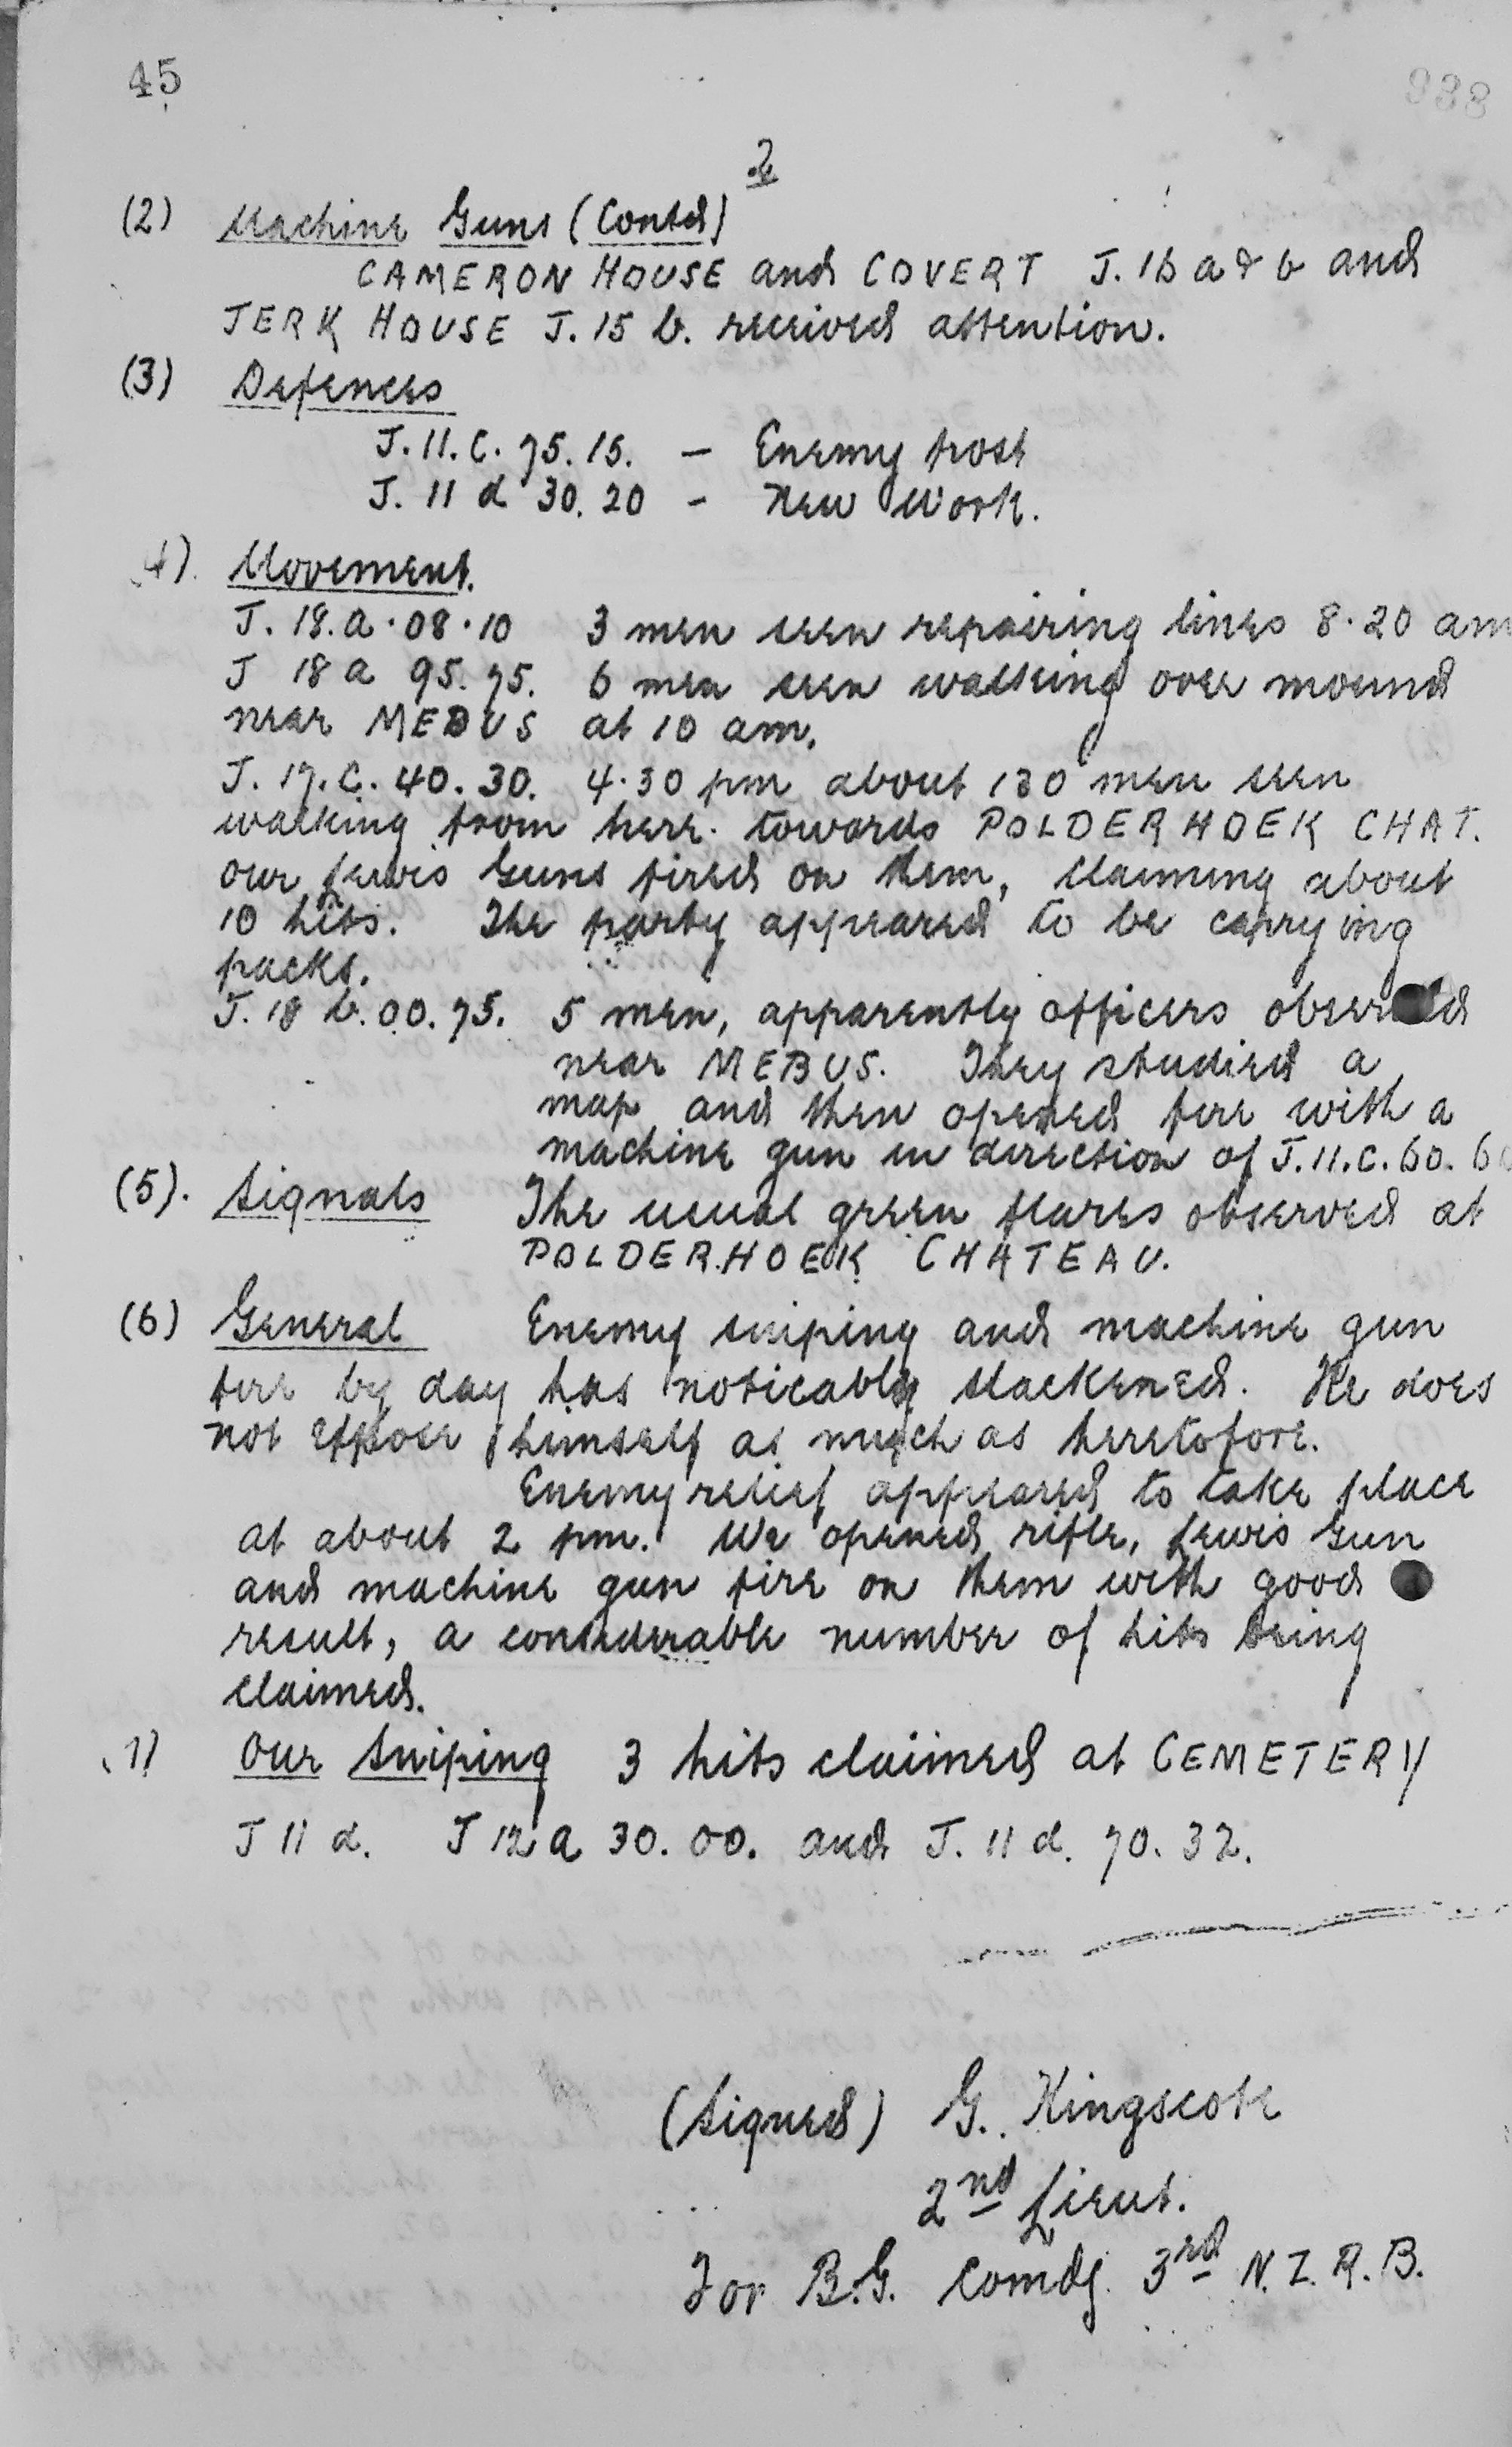 45
938
2
(2) Machine Guns (Contd)
CAMERON HOUSE and COVERT J. 16 a & b and
JERK HOUSE J. 15 b. received attention.
(3) Defences
J. 11. C. 75. 15. - Enemy post
J. 11 d 30. 20 - New Work.
4). Movement.
J. 18. a. 08. 10 3 men seen repairing lines 8.20 am
J 18 a 95. 75. 6 men seen walking over mound
near MEBUS at 10 am.
J. 17. C. 40. 30. 4.30 pm about 130 men seen
walking from here. towards POLDERHOEK CHAT.
our Lewis Guns fired on them, claiming about
10 hits. The party appeared to be carrying
packs.
J. 18 b. 00. 75. 5 men, apparently officers observed
near MEBUS. They studied a
map and then opened fire with a
machine gun in direction of J. 11. C. 60. 60
(5). Signals The usual green flares observed at
POLDERHOEK CHATEAU.
(6) General Enemy sniping and machine gun
fire by day has noticably slackened. He does
not expose himself as much as heretofore.
Enemy relief appeared to take place
at about 2 pm. We opened rifle, Lewis Gun
and machine gun fire on them with good
result, a considerable number of hits being
claimed.
7) Our Sniping 3 hits claimed at CEMETERY
J 11 d. J 12 a 30. 00. and J. 11 d. 70. 32.
(Signed) G. Kingscote
2nd Lieut.
For B.G. Comdg. 3rd N. Z. R. B.